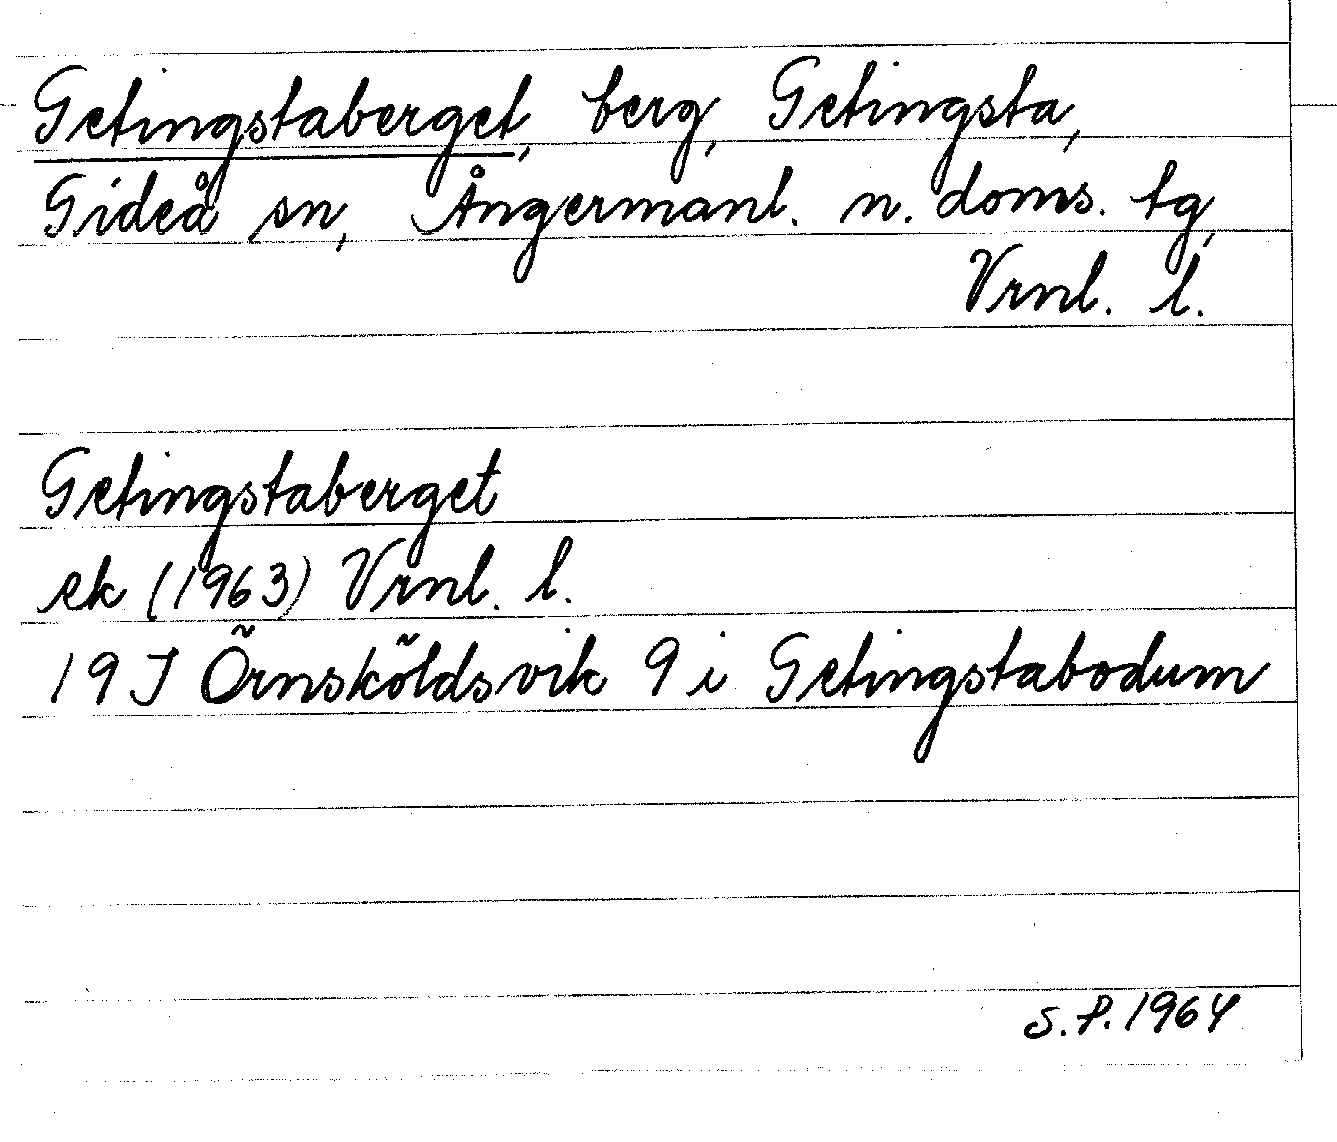 Getingstaberget, berg, Getingsta,
Gideå sn, Ångermanl. n. doms. tg,
Vrnl. l.
Getingstaberget
ek (1963) Vrnl. l.
19J Örnsköldsvik 9 i Getingstabodum
S.P. 1964